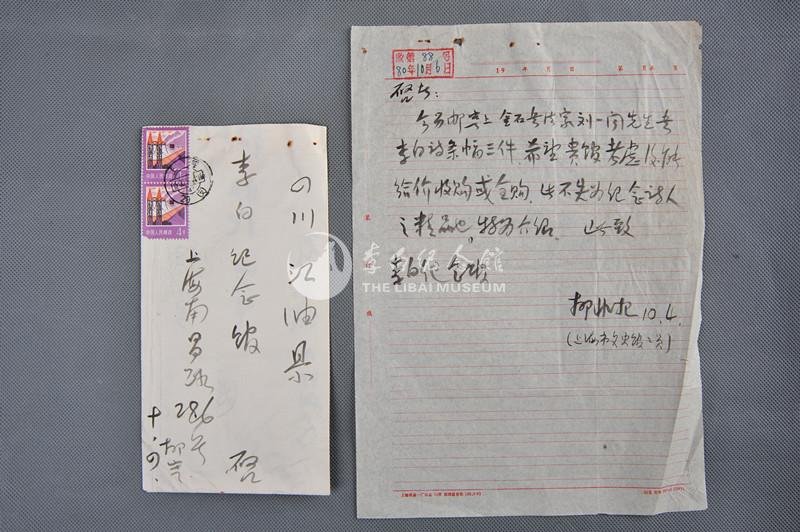 四川江油县
李白纪念馆 启
上海南昌路286号
十.四.
中国人民邮政
中国人民邮政 4分
收第88号
80年10月6日
19 年 月 日 第 页
启者:
今另邮寄上金石书法家刘一闻先生书
李白诗条幅三件 希望贵馆考虑
给价收购或全购,此不失为纪念诗人
之精品也,特为介绍 此致
李白纪念馆
10.4.
(上海市文史馆馆员)
李白纪念馆
THE LIBAI MUSEUM